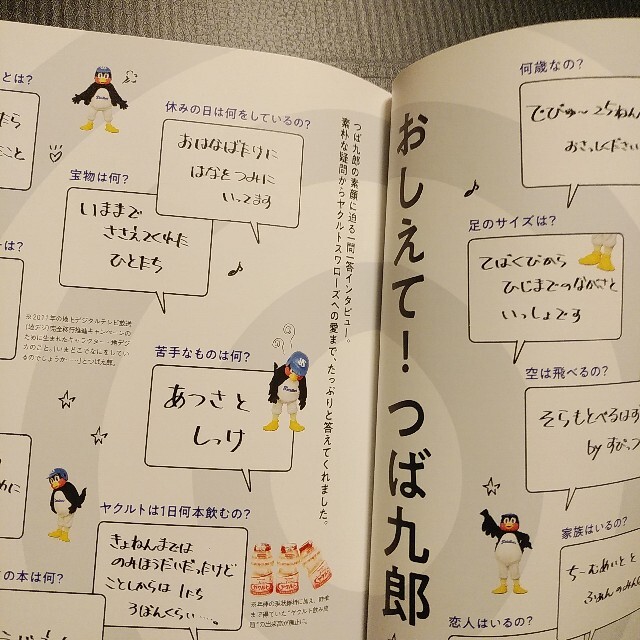 おしえて！つば九郎
つば九郎の素顔に迫る一問一答インタビュー。
素朴な疑問からヤクルトスワローズへの愛まで、たっぷりと答えてくれました。
何歳なの？
でびゅ〜25ねん
おさっしください
足のサイズは？
てばくびから
ひじまでのながさと
いっしょです
空は飛べるの？
そらもとべるはず
by すぴっつ
家族はいるの？
ちーむめいとと
ふぁんのみん
恋人はいるの？
休みの日は何をしているの？
おはなばたけに
はなをつみに
いってます
宝物は何？
いままで
ささえてくれた
ひとたち
苦手なものは何？
あつさと
しっけ
ヤクルトは1日何本飲むの？
きょねんまでは
のみほうだいだったけど
ことしからは 1にち
3ぼんくらい….
とは？
たら
こと
ーは？
※2011年の地上デジタルテレビ放送
(地デジ)完全移行推進キャンペーンの
ために生まれたキャラクター・地デジ
カのこと。「いまどこでなにをしている
のでしょうか……」とつば九郎。
かに
の本は何？